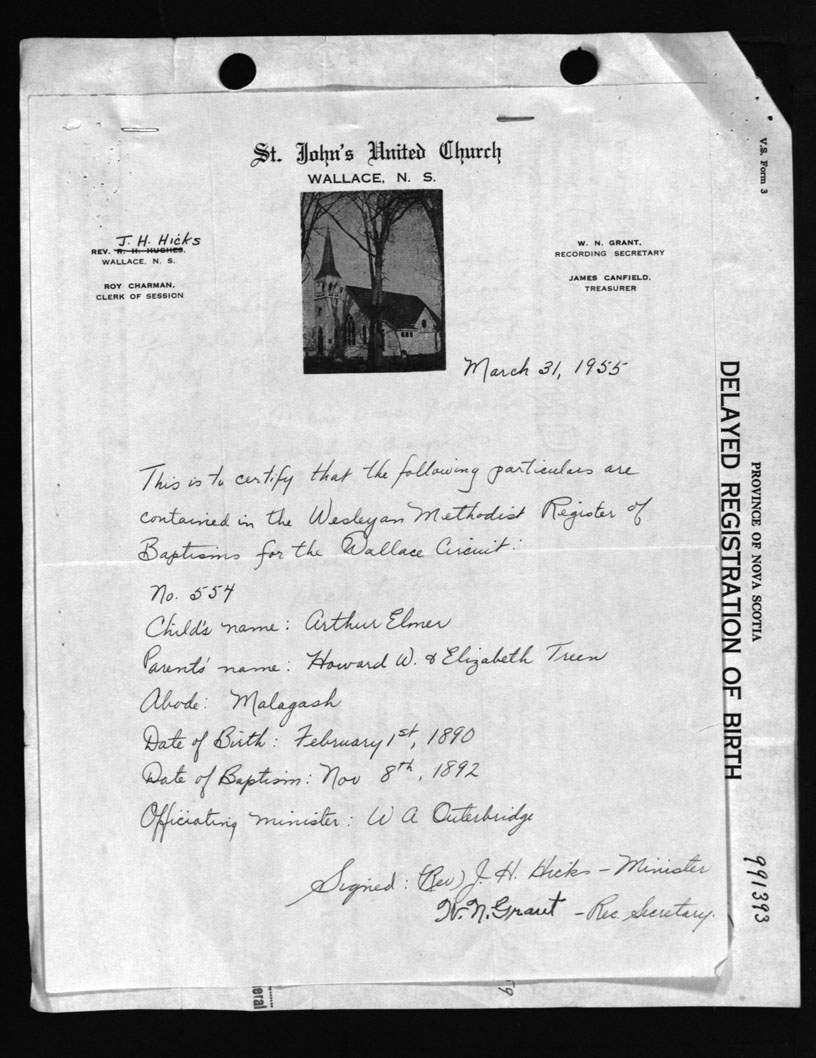 St. John's United Church
WALLACE, N. S.
J. H. Hicks
REV. R. H. HUGHES,
WALLACE, N. S.
ROY CHARMAN,
CLERK OF SESSION
W. N. GRANT,
RECORDING SECRETARY
JAMES CANFIELD,
TREASURER
March 31, 1955
This is to certify that the following particulars are
contained in the Wesleyan Methodist Register of
Baptisms for the Wallace Circuit:
No. 554
Child's name: Arthur Elmer
Parents' name: Howard W. & Elizabeth Treen
Abode: Malagash
Date of Birth: February 1st, 1890
Date of Baptism: Nov 8th, 1892
Officiating minister: W A Outerbridge
Signed: (Rev) J. H. Hicks - Minister
W. N. Grant - Rec. Secretary.
V.S. Form 3
PROVINCE OF NOVA SCOTIA
DELAYED REGISTRATION OF BIRTH
991393